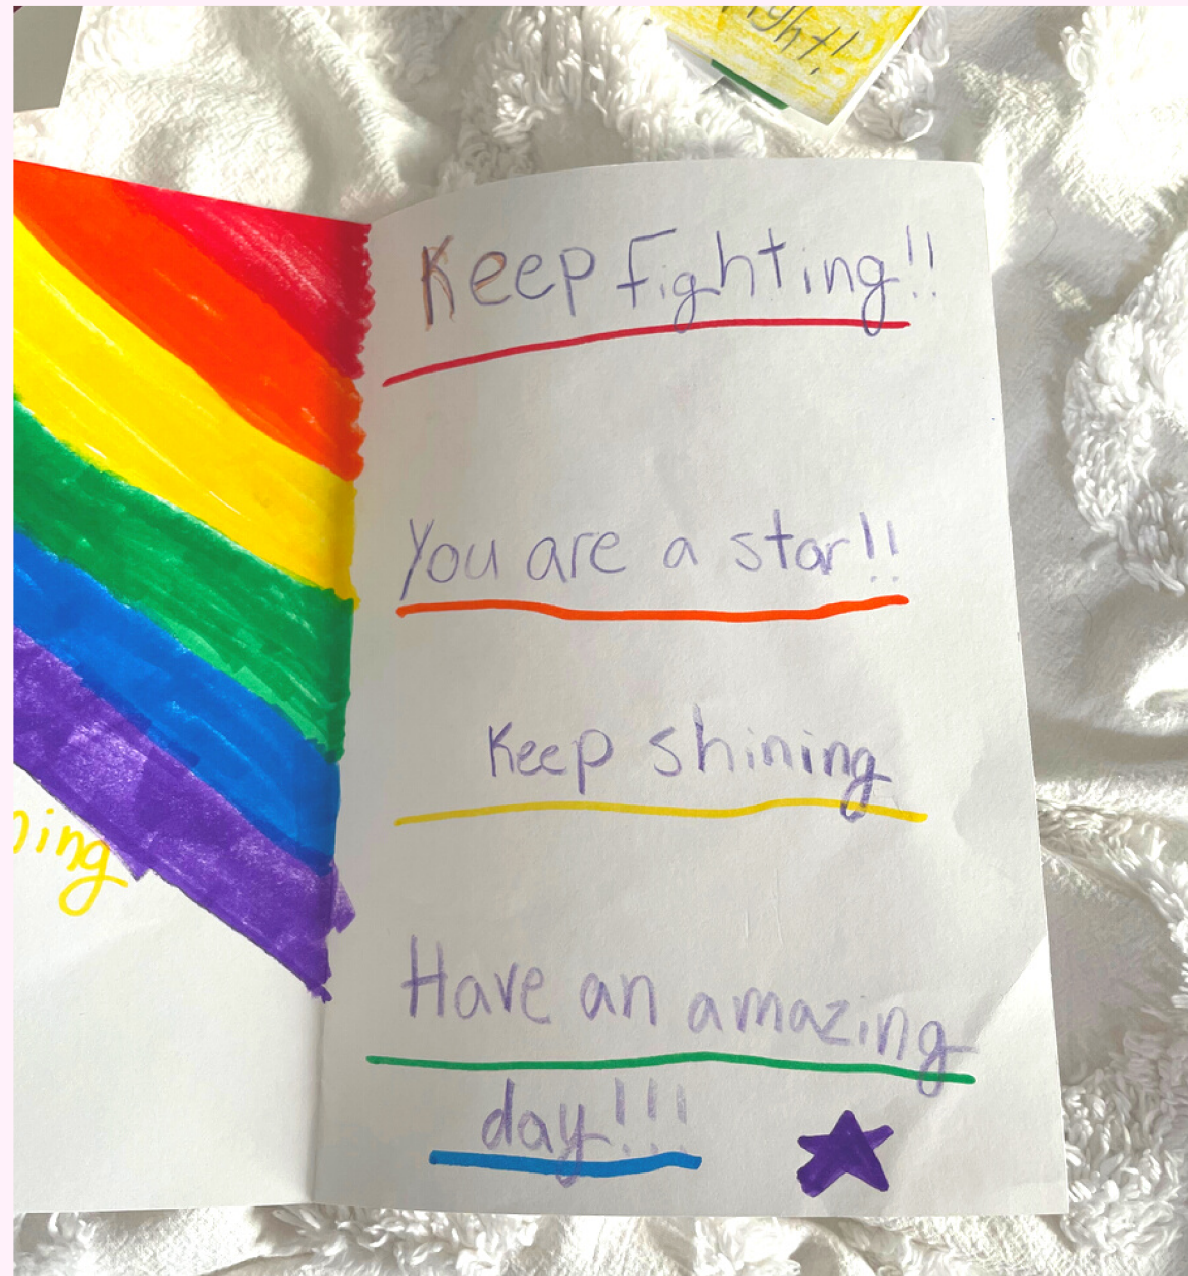 Keep fighting!!
You are a star!!
Keep shining
Have an amazing
day!!!